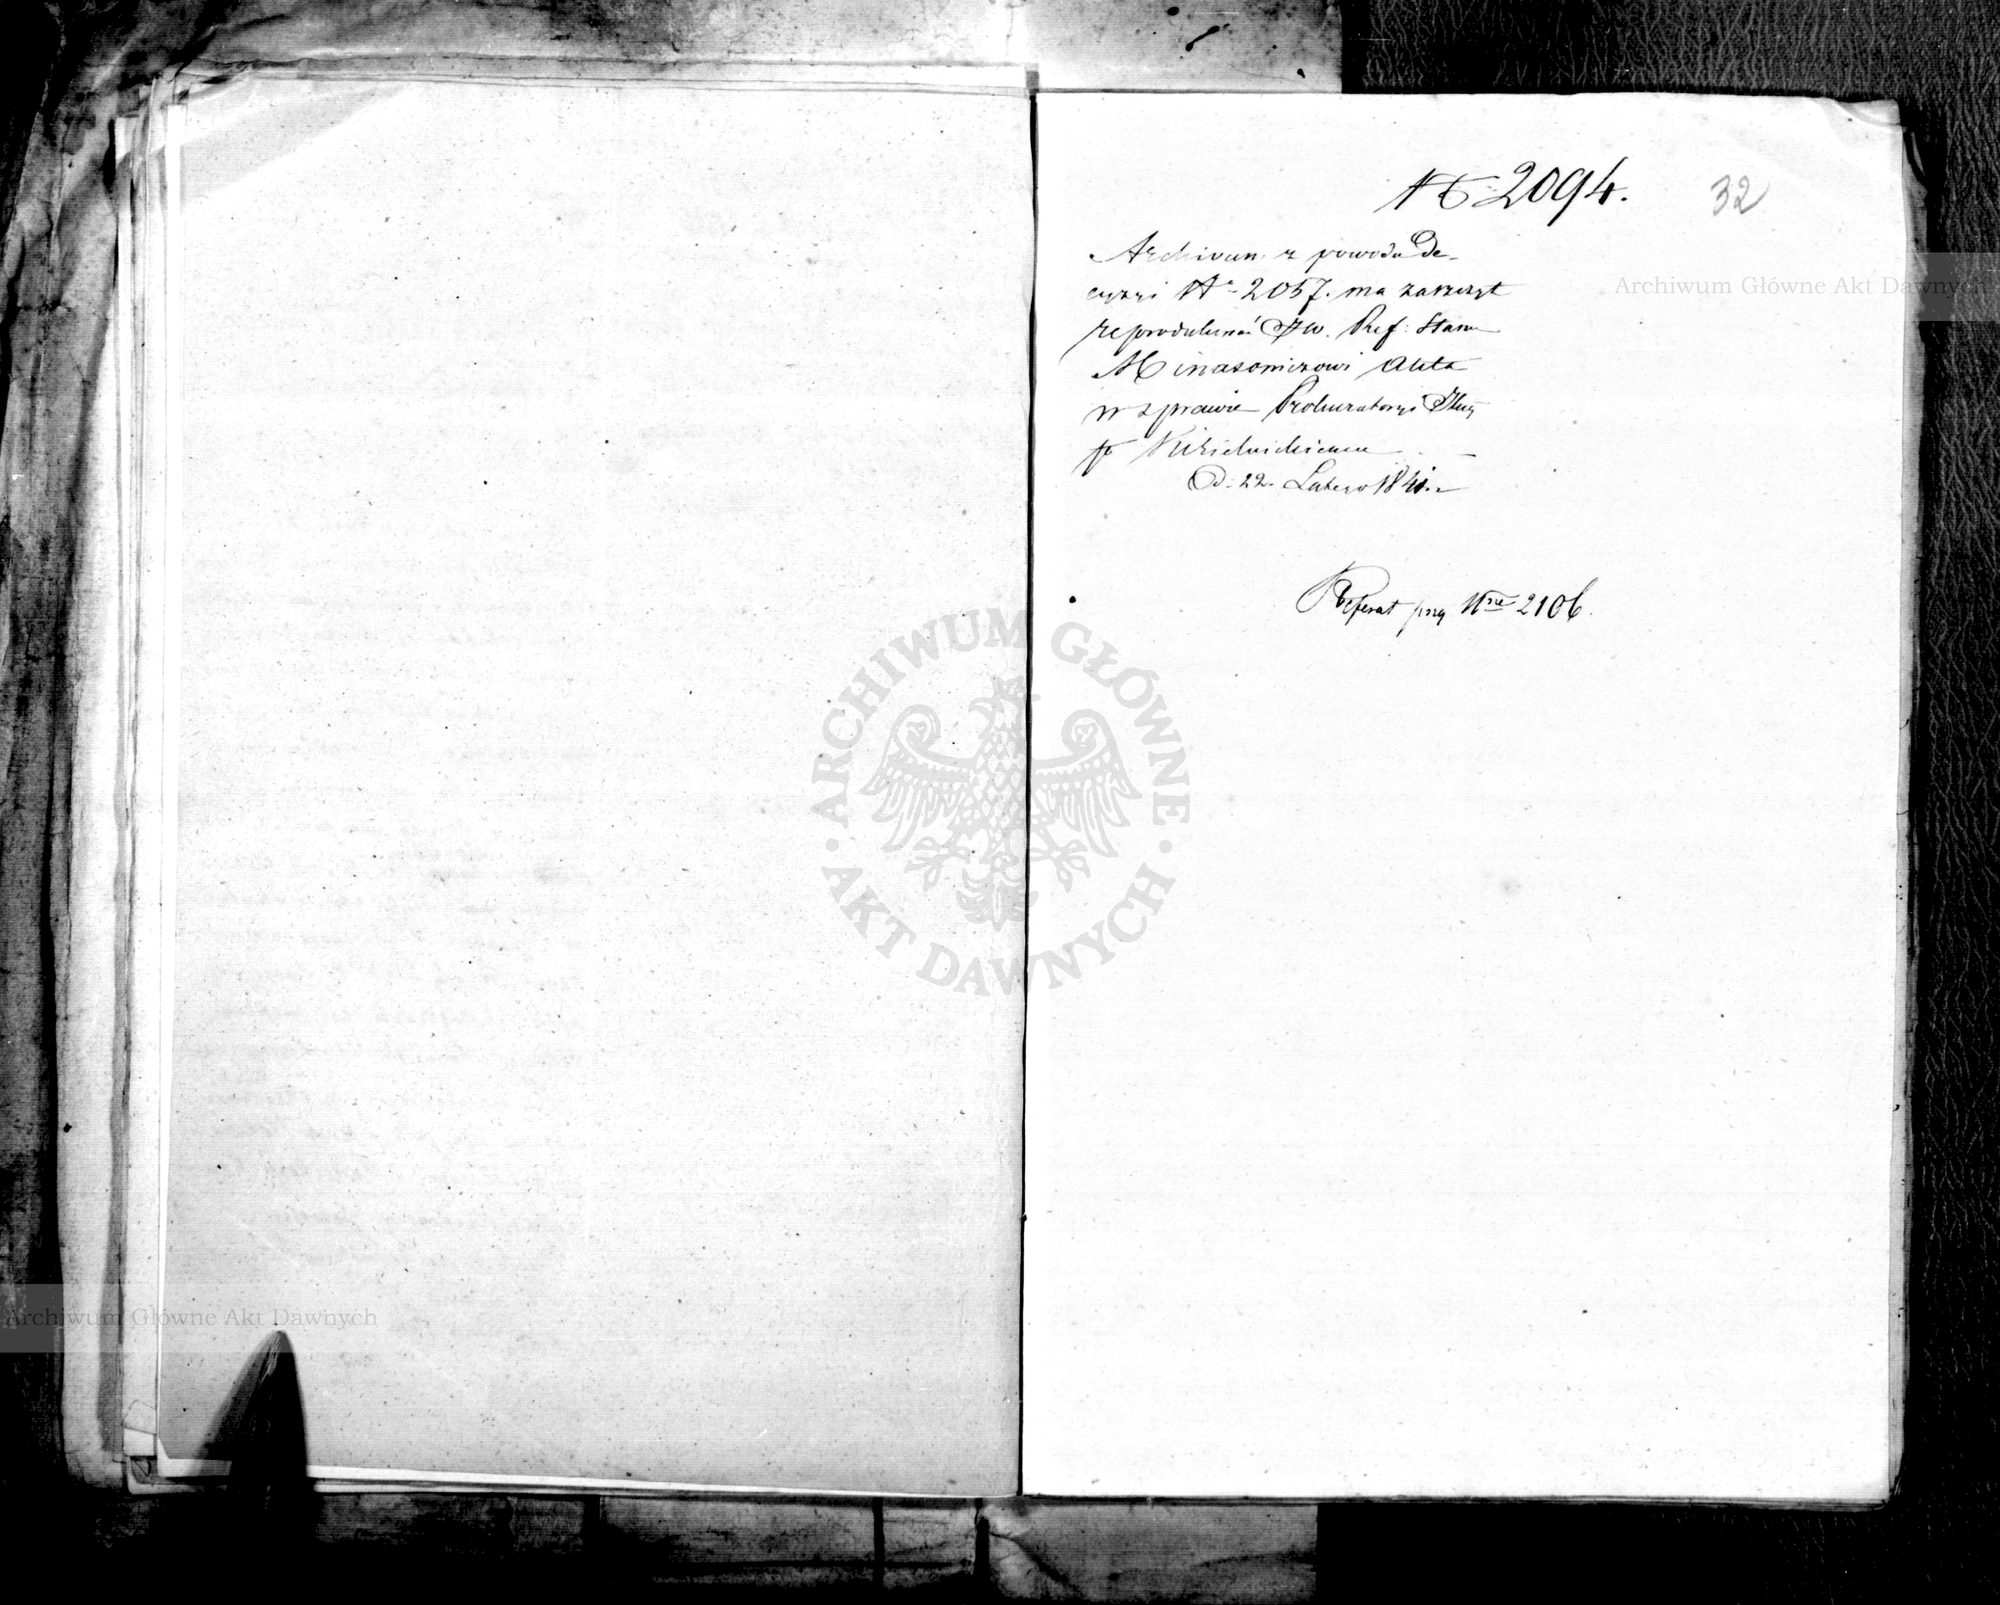 № 2094.
32
Archiwum z powodu De-
cyzyi Nº 2057. ma zaszczyt
reprodukować JW. Ref: Stanu
Minasowiczowi Akta
w sprawie Prokuratoryi
Od: 22. Lutego 1841.
Referat przy Nrze 2106.
Archiwum Główne Akt Dawnych
ARCHIWUM GŁÓWNE · AKT DAWNYCH ·
Archiwum Główne Akt Dawnych